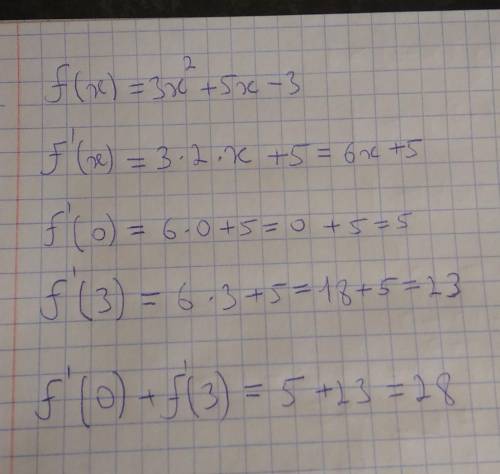 f(x) = 3x² + 5x - 3
f'(x) = 3·2·x + 5 = 6x + 5
f'(0) = 6·0 + 5 = 0 + 5 = 5
f'(3) = 6·3 + 5 = 18 + 5 = 23
f'(0) + f'(3) = 5 + 23 = 28